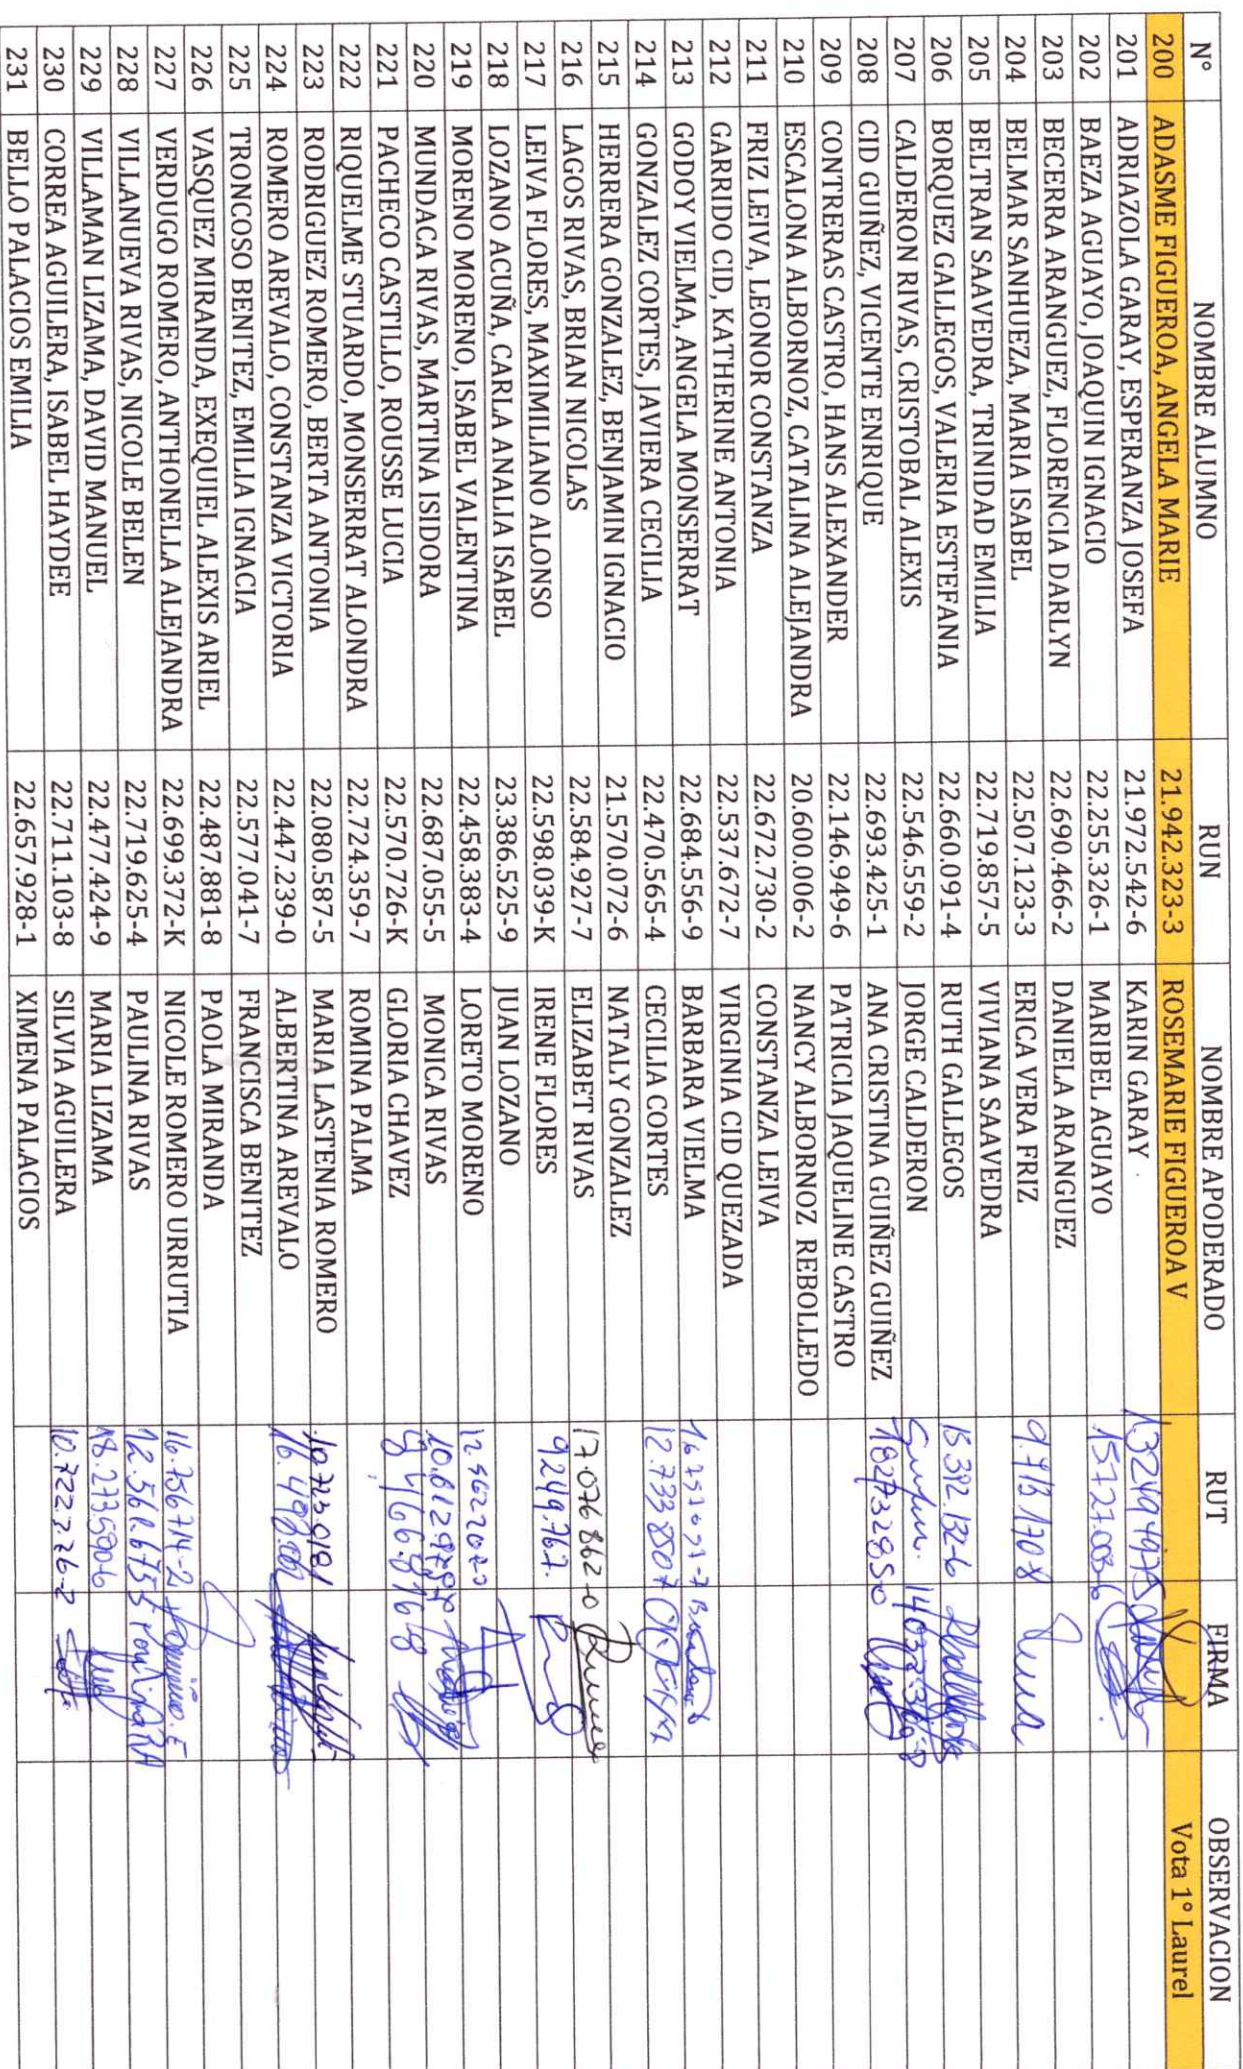 N° NOMBRE ALUMNO RUN NOMBRE APODERADO RUT FIRMA OBSERVACION
200 ADASME FIGUEROA, ANGELA MARIE 21.942.323-3 ROSEMARIE FIGUEROA V Vota 1° Laurel
201 ADRIAZOLA GARAY, ESPERANZA JOSEFA 21.972.542-6 KARIN GARAY
202 BAEZA AGUAYO, JOAQUIN IGNACIO 22.255.326-1 MARIBEL AGUAYO 15727.003-6
203 BECERRA ARANGUEZ, FLORENCIA DARLYN 22.690.466-2 DANIELA ARANGUEZ
204 BELMAR SANHUEZA, MARIA ISABEL 22.507.123-3 ERICA VERA FRIZ
205 BELTRAN SAAVEDRA, TRINIDAD EMILIA 22.719.857-5 VIVIANA SAAVEDRA
206 BORQUEZ GALLEGOS, VALERIA ESTEFANIA 22.660.091-4 RUTH GALLEGOS 15.392.132-6
207 CALDERON RIVAS, CRISTOBAL ALEXIS 22.546.559-2 JORGE CALDERON
208 CID GUIÑEZ, VICENTE ENRIQUE 22.693.425-1 ANA CRISTINA GUIÑEZ GUIÑEZ
209 CONTRERAS CASTRO, HANS ALEXANDER 22.146.949-6 PATRICIA JAQUELINE CASTRO
210 ESCALONA ALBORNOZ, CATALINA ALEJANDRA 20.600.006-2 NANCY ALBORNOZ REBOLLEDO
211 FRIZ LEIVA, LEONOR CONSTANZA 22.672.730-2 CONSTANZA LEIVA
212 GARRIDO CID, KATHERINE ANTONIA 22.537.672-7 VIRGINIA CID QUEZADA
213 GODOY VIELMA, ANGELA MONSERRAT 22.684.556-9 BARBARA VIELMA
214 GONZALEZ CORTES, JAVIERA CECILIA 22.470.565-4 CECILIA CORTES 12.733880-7
215 HERRERA GONZALEZ, BENJAMIN IGNACIO 21.570.072-6 NATALY GONZALEZ
216 LAGOS RIVAS, BRIAN NICOLAS 22.584.927-7 ELIZABET RIVAS 17.076862-0
217 LEIVA FLORES, MAXIMILIANO ALONSO 22.598.039-K IRENE FLORES 9249.767.
218 LOZANO ACUÑA, CARLA ANALIA ISABEL 23.386.525-9 JUAN LOZANO
219 MORENO MORENO, ISABEL VALENTINA 22.458.383-4 LORETO MORENO
220 MUNDACA RIVAS, MARTINA ISIDORA 22.687.055-5 MONICA RIVAS
221 PACHECO CASTILLO, ROUSSE LUCIA 22.570.726-K GLORIA CHAVEZ
222 RIQUELME STUARDO, MONSERRAT ALONDRA 22.724.359-7 ROMINA PALMA
223 RODRIGUEZ ROMERO, BERTA ANTONIA 22.080.587-5 MARIA LASTENIA ROMERO
224 ROMERO AREVALO, CONSTANZA VICTORIA 22.447.239-0 ALBERTINA AREVALO
225 TRONCOSO BENITEZ, EMILIA IGNACIA 22.577.041-7 FRANCISCA BENITEZ
226 VASQUEZ MIRANDA, EXEQUIEL ALEXIS ARIEL 22.487.881-8 PAOLA MIRANDA
227 VERDUGO ROMERO, ANTHONELLA ALEJANDRA 22.699.372-K NICOLE ROMERO URRUTIA 16.756714-2
228 VILLANUEVA RIVAS, NICOLE BELEN 22.719.625-4 PAULINA RIVAS
229 VILLAMAN LIZAMA, DAVID MANUEL 22.477.424-9 MARIA LIZAMA
230 CORREA AGUILERA, ISABEL HAYDEE 22.711.103-8 SILVIA AGUILERA
231 BELLO PALACIOS EMILIA 22.657.928-1 XIMENA PALACIOS